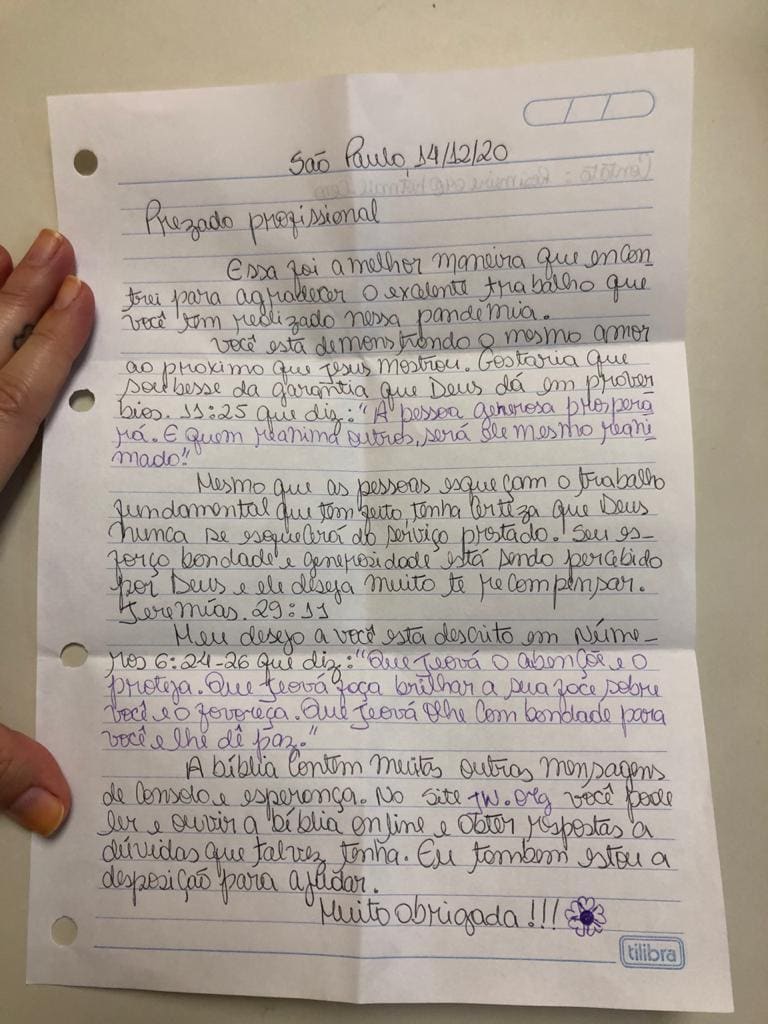 São Paulo, 14/12/20
Prezado profissional
Essa foi a melhor maneira que encon-
trei para agradecer o excelente trabalho que
você tem realizado nessa pandemia.
Você está demonstrando o mesmo amor
ao proximo que Jesus mostrou. Gostaria que
soubesse da garantia que Deus dá em prover
bios. 11:25 que diz: "A pessoa generosa prospera
rá. E quem reanima outros, será ele mesmo reani
mado."
Mesmo que as pessoas esqueçam o trabalho
fundamental que tem feito, tenha certeza que Deus
nunca se esquecerá do serviço prestado. Seu es-
forço bondade e generosidade está sendo percebido
por Deus e ele deseja muito te recompensar.
Jeremias. 29:11
Meu desejo a você esta descrito em Núme-
ros 6:24-26 que diz: "Que Jeová o abençõe e o
proteja. Que Jeová faça brilhar a sua face sobre
você e o favoreça. Que Jeová olhe com bondade para
você e lhe dê paz."
A bíblia contem muitas outras mensagens
de consolo e esperança. No site jw.org você pode
ler e ouvir a bíblia online e obter respostas a
dúvidas que talvez tenha. Eu tambem estou a
desposição para ajudar.
Muito obrigada!!!
tilibra